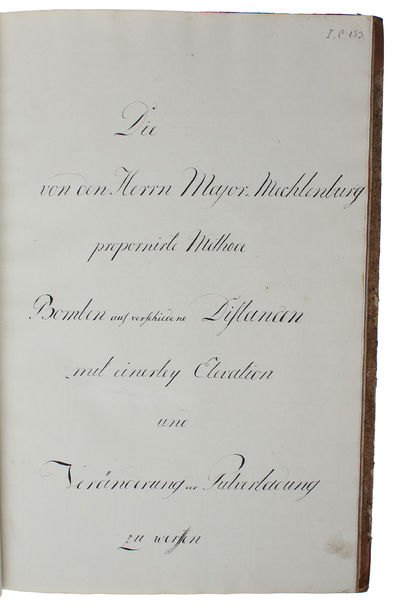 I, C. 153.
Die
von den Herrn Major v. Mechlenburg
propornirte Methode
Bomben auf verschiedene Distancen
mit einerley Elevation
und
Veränderung der Pulverladung
zu werfen